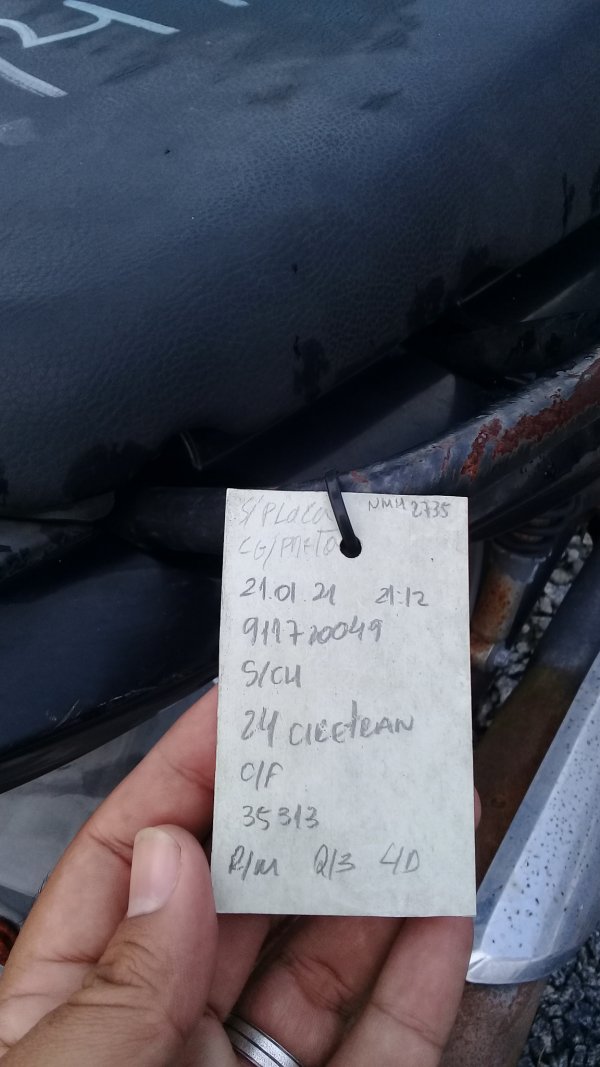 S/PLACA NMH 2735
CG/PRETO
21.01.21 21:12
911720049
S/CH
24 CIRETRAN
C/F
35313
R/M Q/3 4D